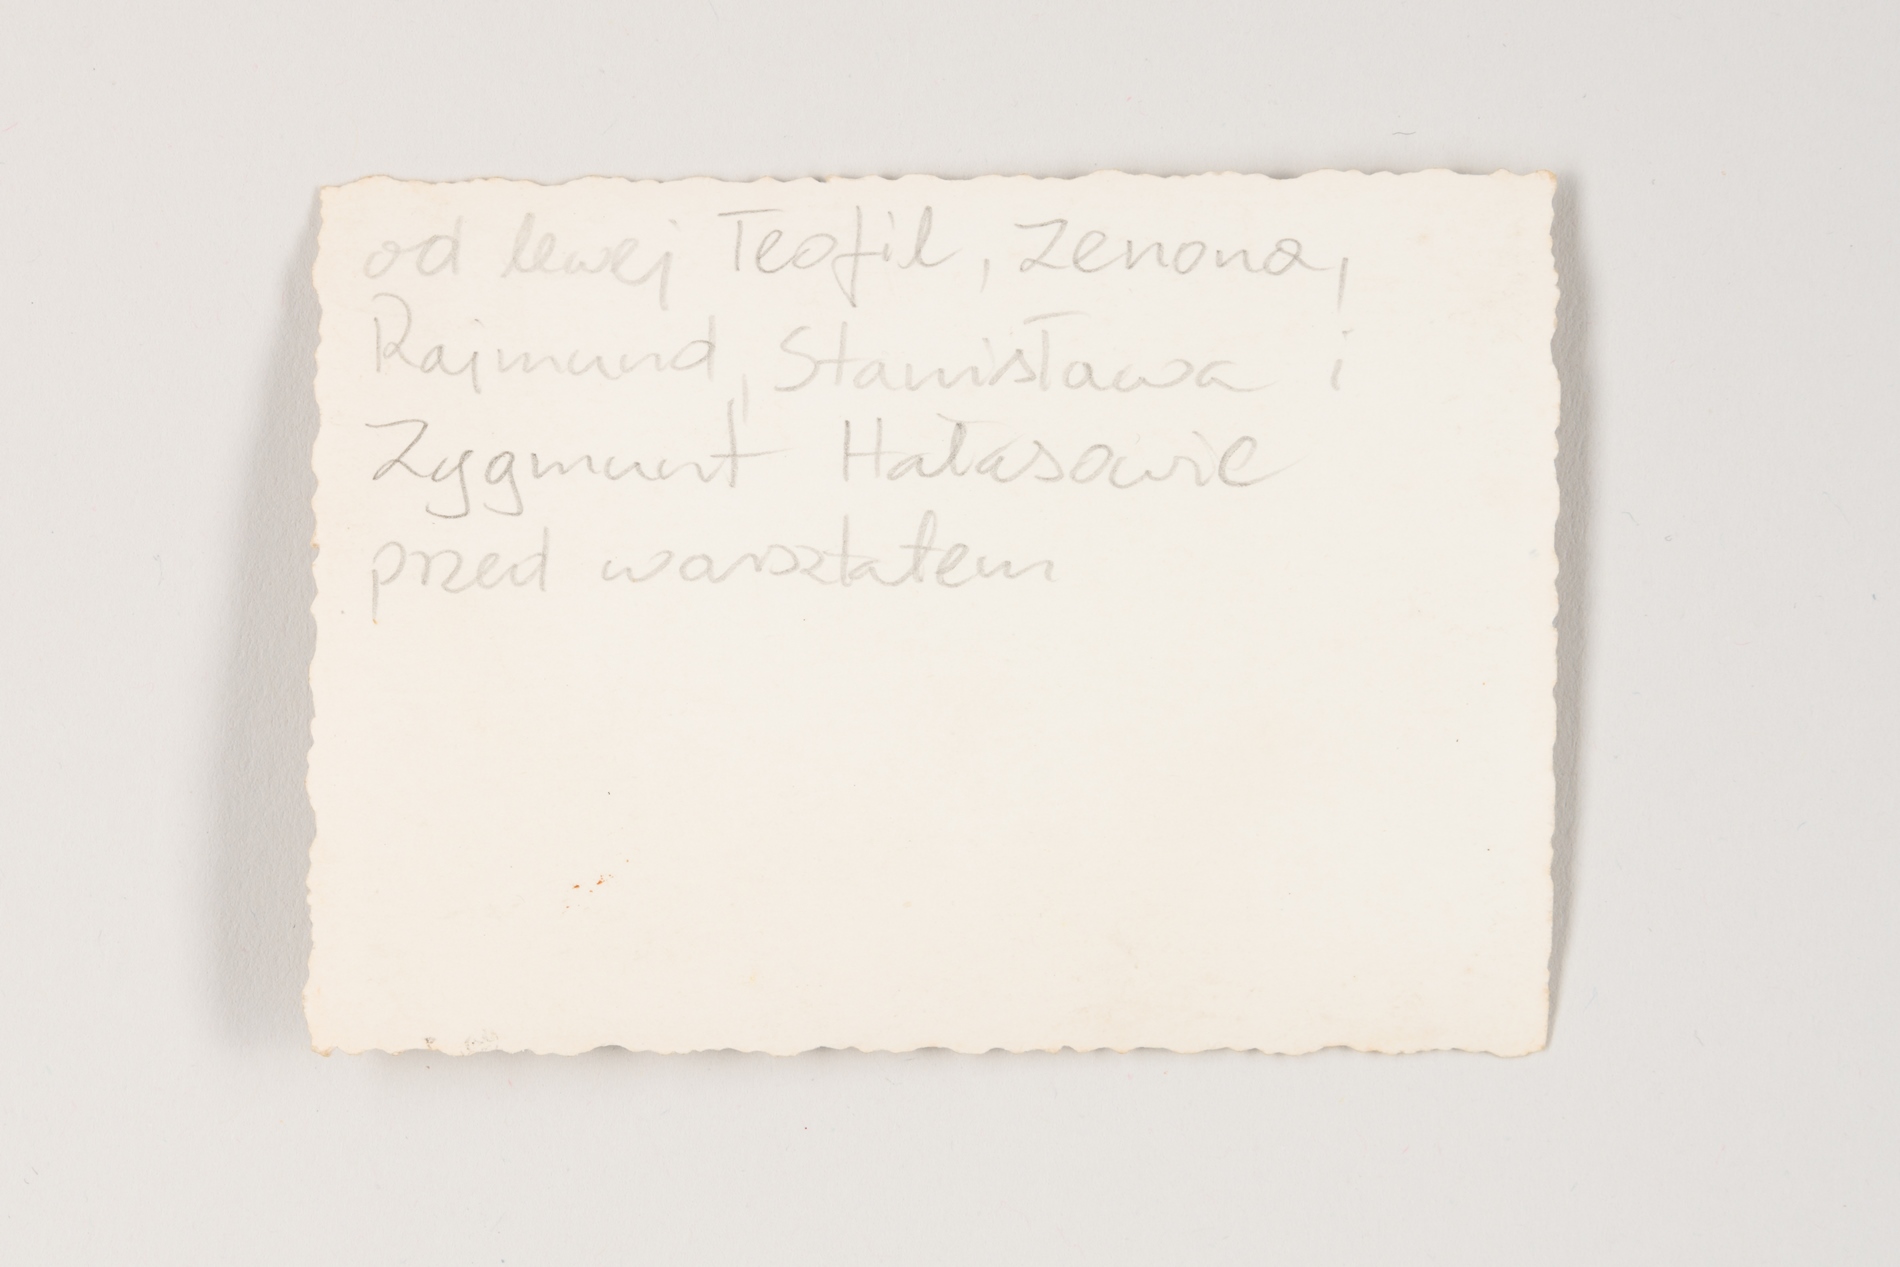 od lewej Teofil, Zenona,
Rajmund, Stanisława i
Zygmunt Hałasowie
przed warsztatem